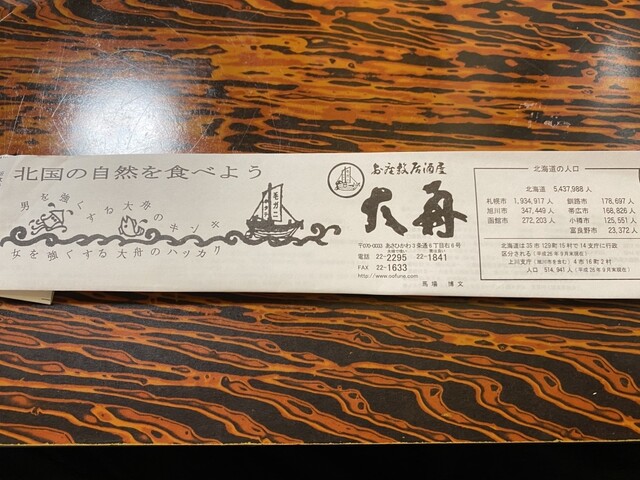 北国の自然を食べよう
男を強く
する大舟
の
キンキ
女を強くする大舟のハッカク
毛ガニ
お座敷居酒屋
大舟
〒070-0033 あさひかわ3条通6丁目右6号
電話 22-2295 22-1841
FAX 22-1633
http://www.oofuna.com
馬場 博文
北海道の人口
北海道 5,437,988人
札幌市 1,934,917人 釧路市 178,697人
旭川市 347,449人 帯広市 168,826人
函館市 272,203人 小樽市 125,551人
富良野市 23,372人
北海道は35市129町15村で14支庁に行政
区分される(平成26年9月末現在)
上川支庁(旭川市を含む)4市16町2村
人口 514,941人(平成26年9月末現在)